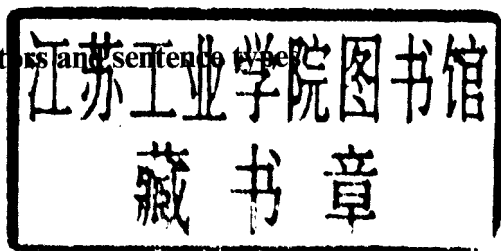 tors and sentence types
江苏工业学院图书馆
藏书章